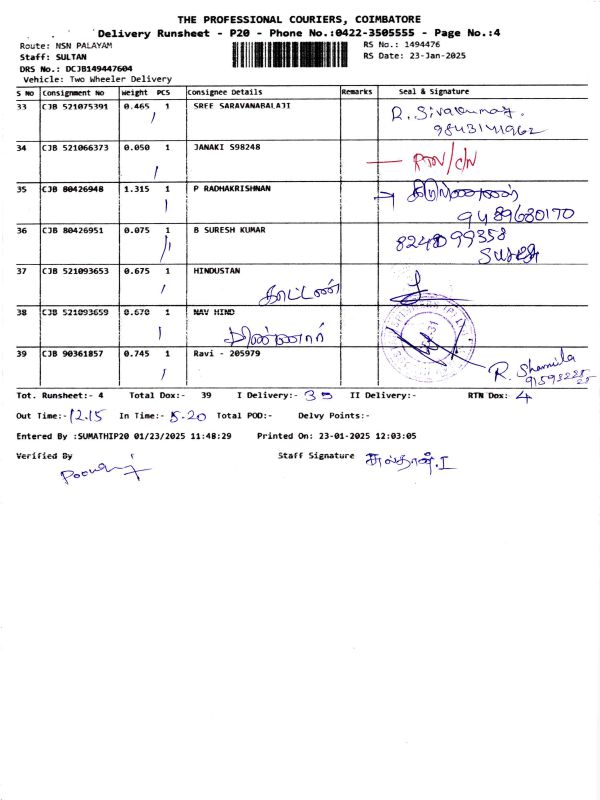 THE PROFESSIONAL COURIERS, COIMBATORE
Delivery Runsheet - P20 - Phone No.:0422-3505555 - Page No.:4
Route: NSN PALAYAM RS No.: 1494476
Staff: SULTAN RS Date: 23-Jan-2025
DRS No.: DCJB149447604
Vehicle: Two Wheeler Delivery
S No Consignment No Weight PCS Consignee Details Remarks Seal & Signature
33 CJB 521075391 0.465 1 SREE SARAVANABALAJI R. Sivakumar
9843141962
34 CJB 521066373 0.050 1 JANAKI S98248 RTN/CN
35 CJB 80426948 1.315 1 P RADHAKRISHNAN
9489680170
36 CJB 80426951 0.075 1 B SURESH KUMAR 8248099358
Suresh
37 CJB 521093653 0.675 1 HINDUSTAN
காட்டன்
38 CJB 521093659 0.670 1 NAV HIND
39 CJB 90361857 0.745 1 Ravi - 205979 R. Sharmila
Tot. Runsheet:- 4 Total Dox:- 39 I Delivery:- 35 II Delivery:- RTN Dox: 4
Out Time:- 12.15 In Time:- 5.20 Total POD:- Delvy Points:-
Entered By :SUMATHIP20 01/23/2025 11:48:29 Printed On: 23-01-2025 12:03:05
Verified By Staff Signature சுல்தான்.I